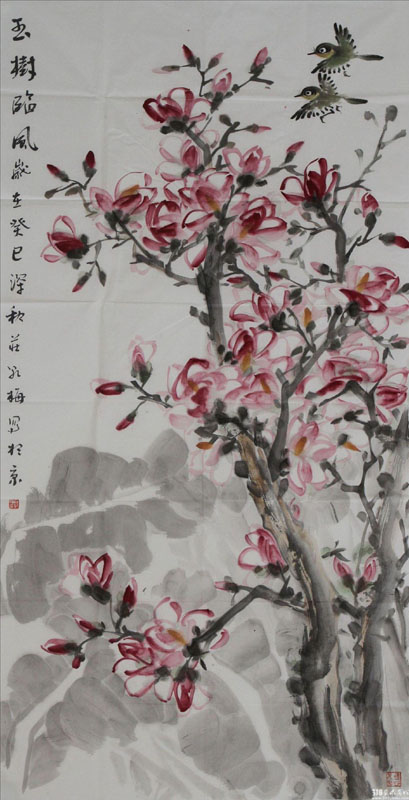 玉樹臨風歲在癸巳深秋莊啟梅寫於京